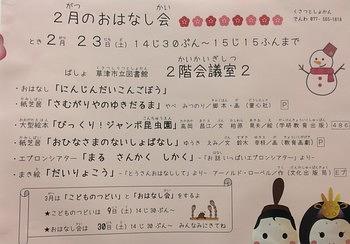 くさつとしょかん
２月のおはなし会
でんわ 077-565-1818
とき ２月 ２３日(土) 14じ30ぷん～15じ15ふんまで
くさつしりつとしょかん
かいかいぎしつ
ばしょ 草津市立図書館 ２階会議室２
・おはなし「にんじんだいこんごぼう」
・紙芝居「さむがりやのゆきだるま」 やべ みつのり／脚本・画 (童心社) P
・大型絵本「びっくり！ジャンボ昆虫園」
・紙芝居「おひなさまのないしょばなし」 画 (教育画劇) P
・エプロンシアター「まる さんかく しかく」
・まき絵「だいりょこう」 －「とうさんおはなしして」より－ アーノルド・ローベル／作 (文化出版局) E
3月は「こどものつどい」と「おはなし会」をするよ
★こどものつどいは 9日(土) 14じ30ぷん～
★おはなし会は 30日(土) 14じ30ぷん～ みんなみにきてね